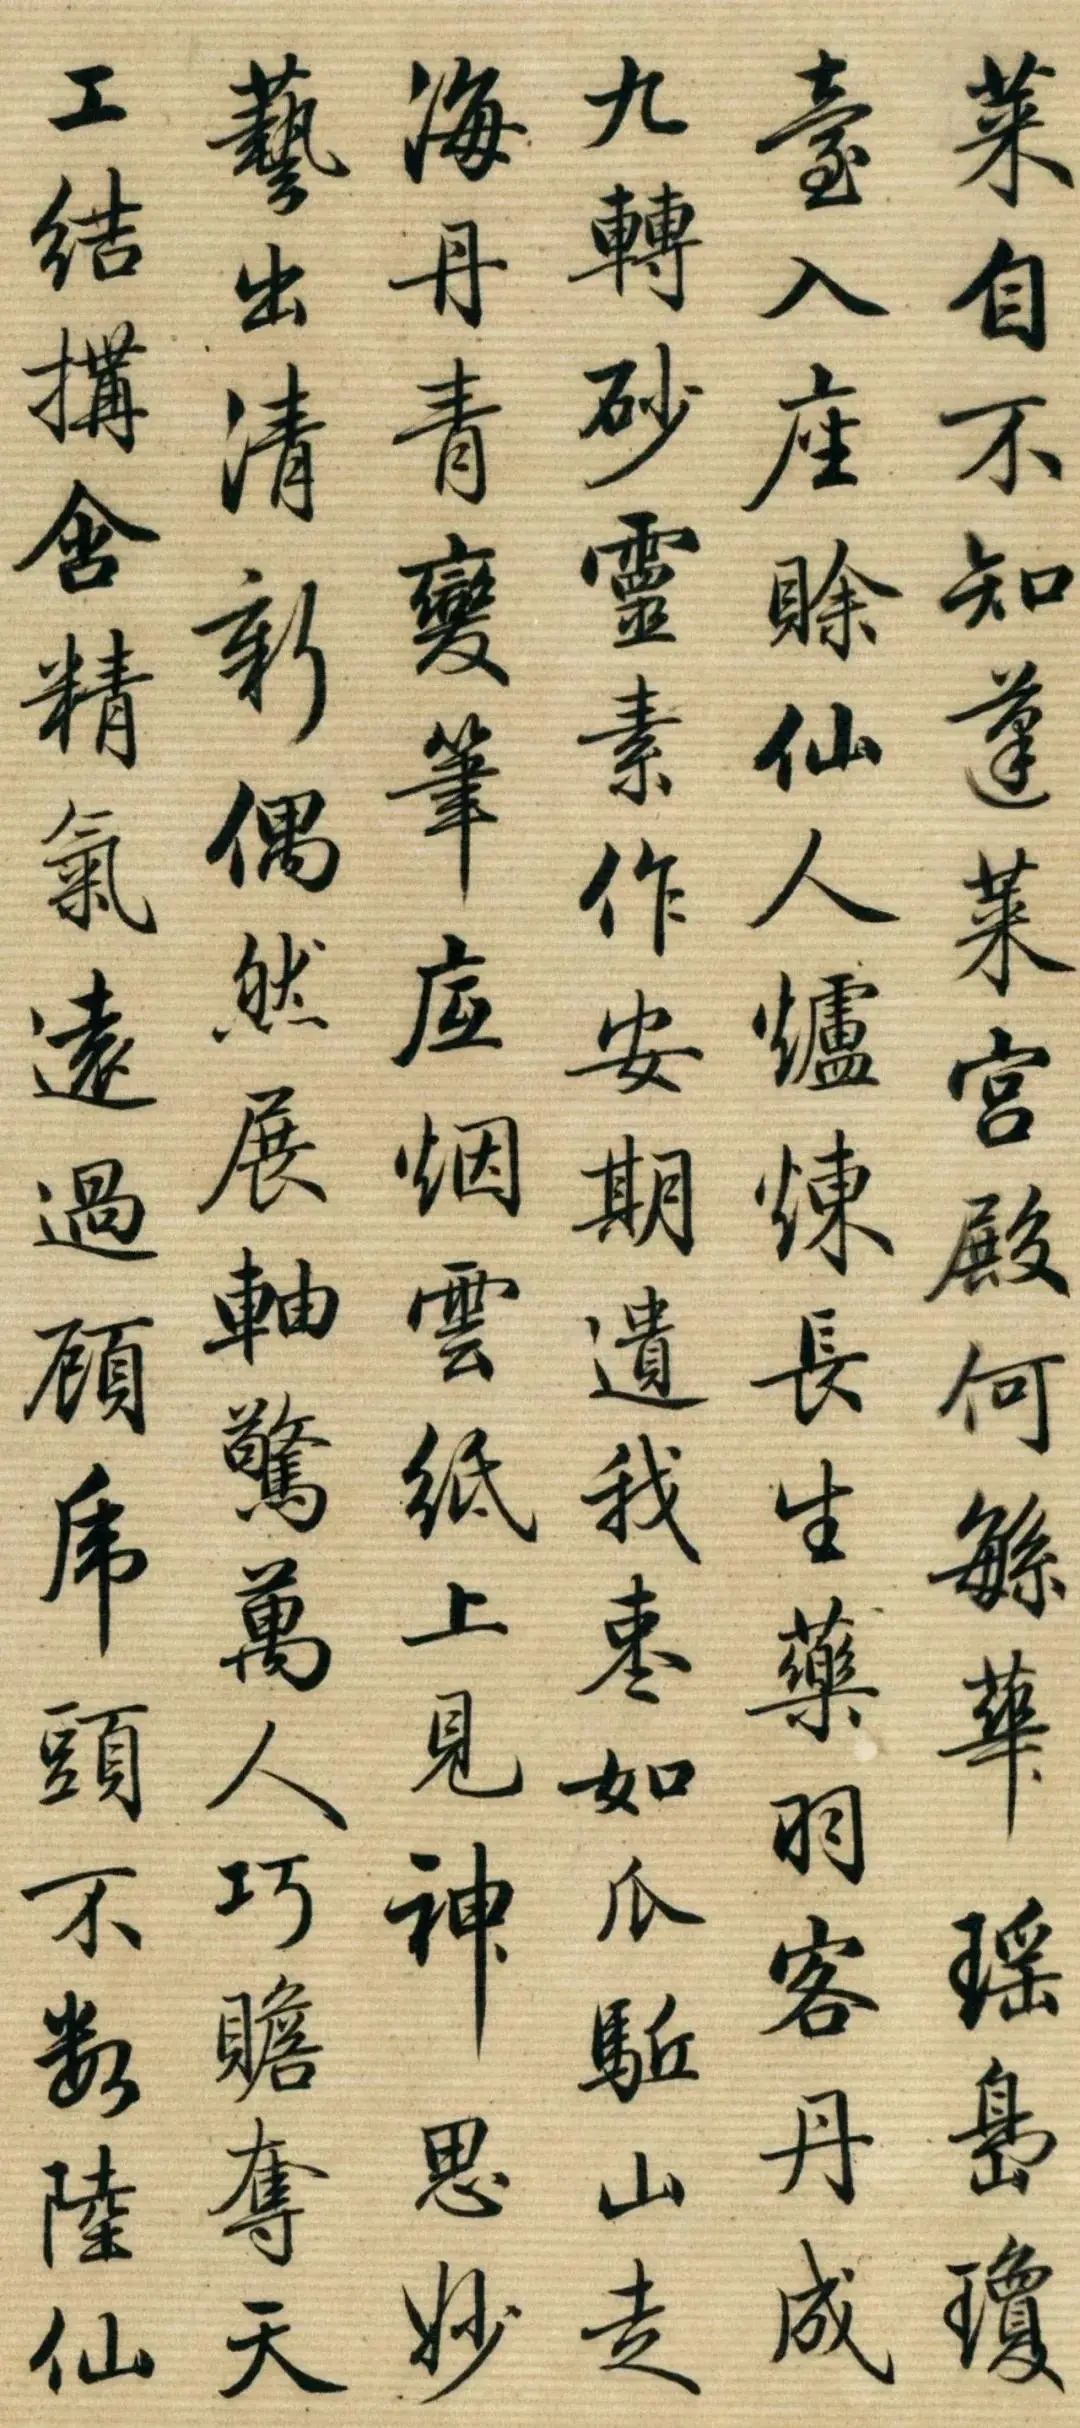 菜自不知蓬萊宮殿何繇華瑶島瓊
臺入座賒仙人爐煉長生藥羽客丹成
九轉砂靈素作安期遺我枣如瓜駈山走
海丹青變筆底烟雲紙上見神思妙
藝出清新偶然展軸驚萬人巧贍奪天
工结搆含精氣遠過顧虎頭不数陸仙